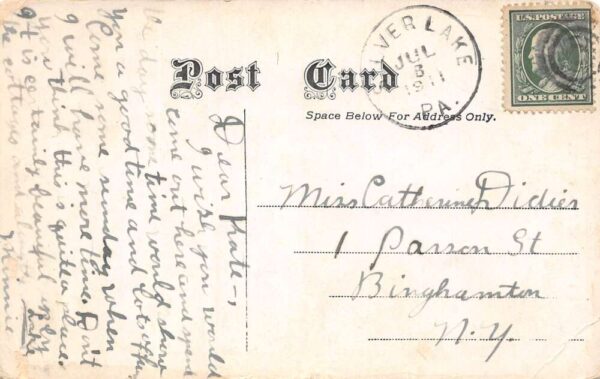 Post Card
Space Below For Address Only.
VER LAKE
JUL
1911
PA.
U.S. POSTAGE
ONE CENT
Miss Catherine Didier
1 Parson St
Binghamton
N.Y.
Dear Kate-,
I wish you would
come out here and spend
the day some time would show
you a good time and
Come some sunday when
I will have more time. Don't
you think this is quite a place.
It is certainly beautiful up by
the cottages and along
lake
Minnie